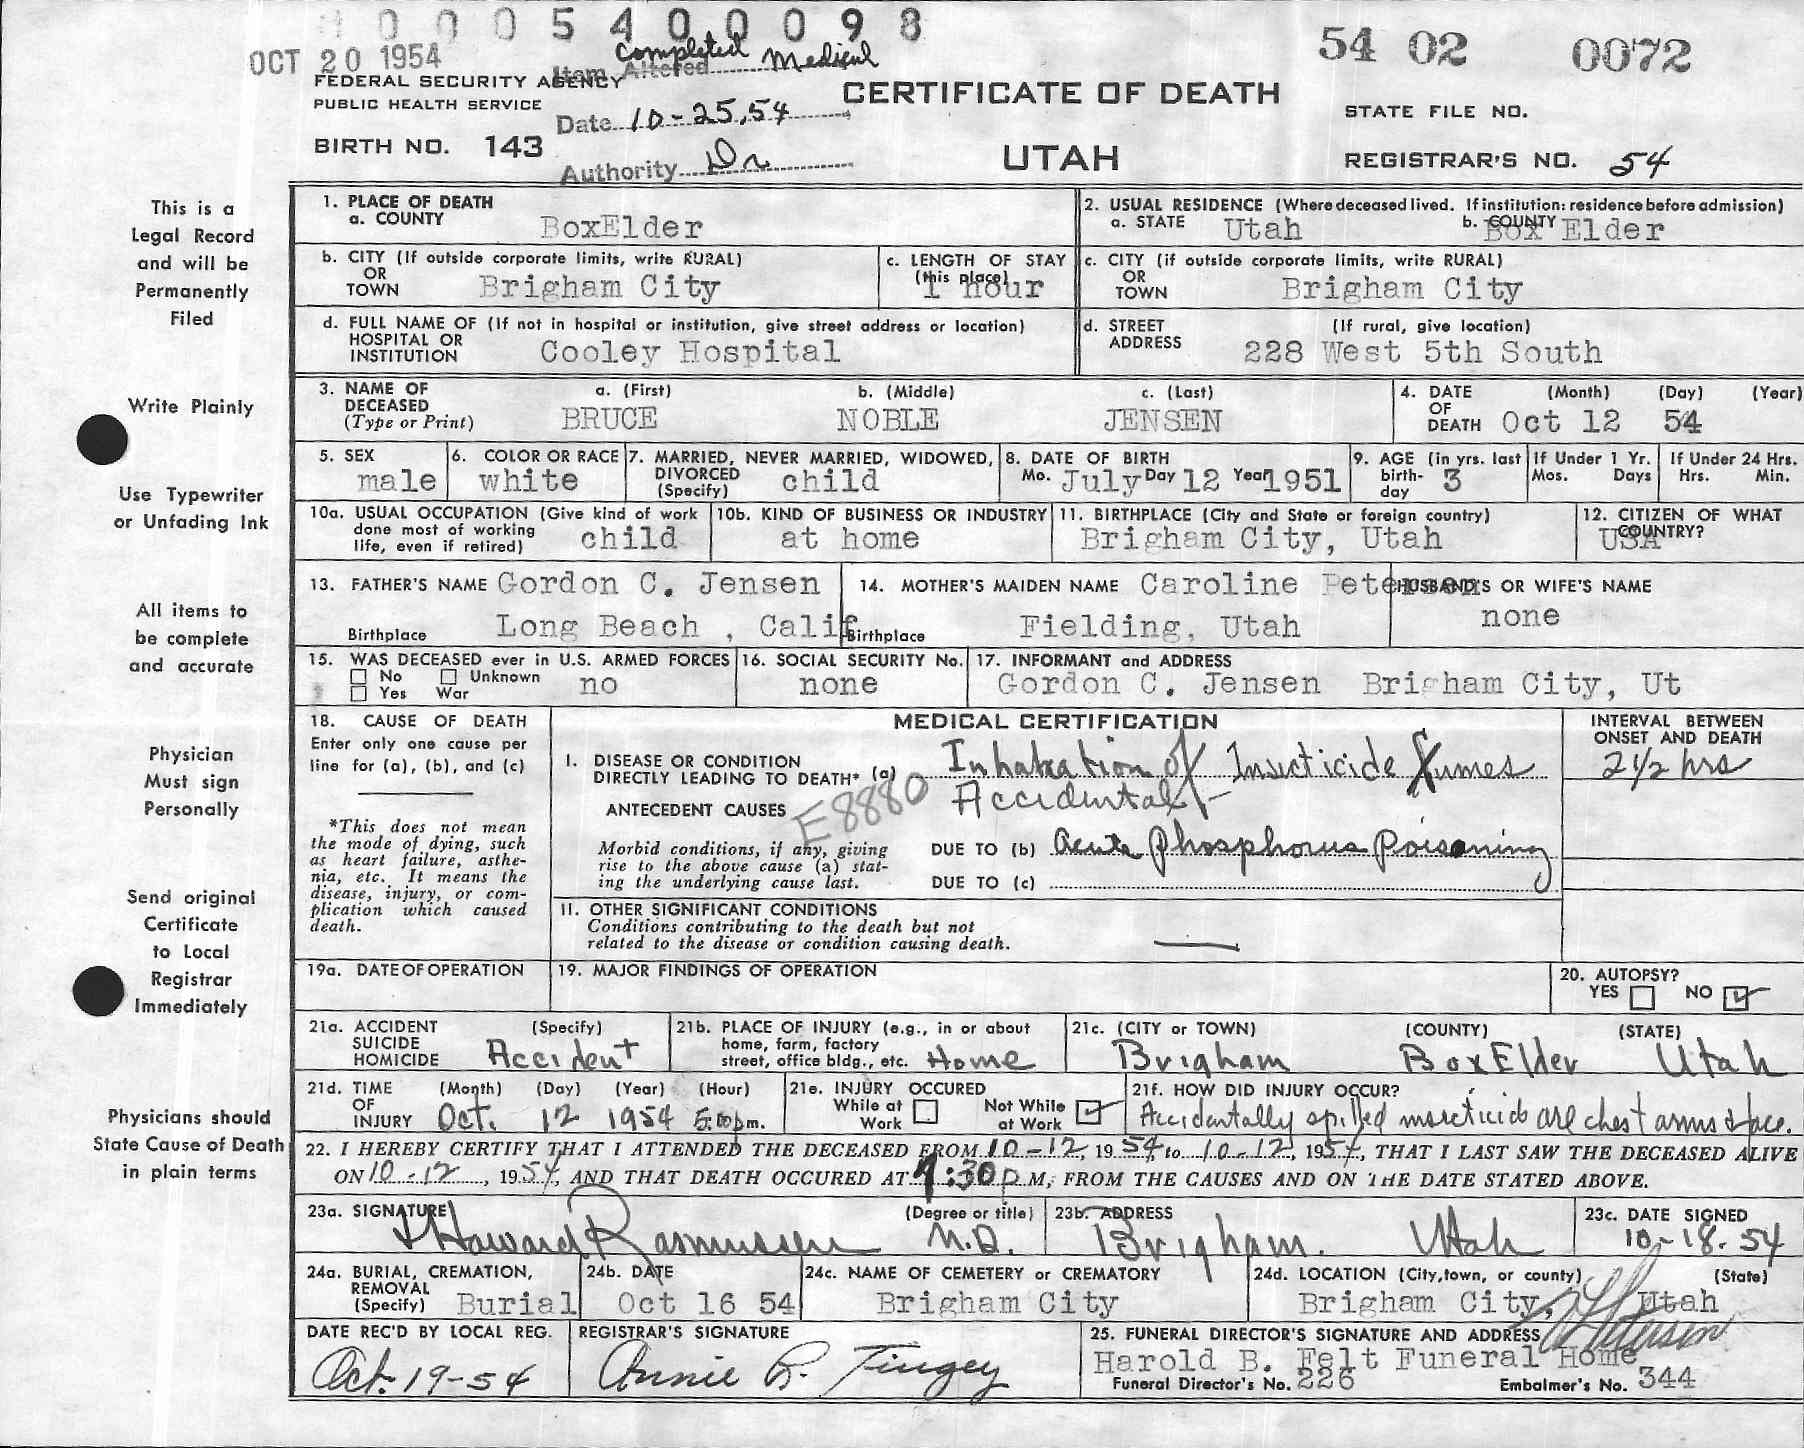 0 0 0 5 4 0 0 0 9 8
OCT 20 1954
Item Altered completed Medical
54 02 0072
FEDERAL SECURITY AGENCY
PUBLIC HEALTH SERVICE
Date 10-25,54
CERTIFICATE OF DEATH
STATE FILE NO.
BIRTH NO. 143
Authority Dr
UTAH
REGISTRAR'S NO. 54
This is a
Legal Record
and will be
Permanently
Filed
Write Plainly
Use Typewriter
or Unfading Ink
All items to
be complete
and accurate
Physician
Must sign
Personally
Send original
Certificate
to Local
Registrar
Immediately
Physicians should
State Cause of Death
in plain terms
1. PLACE OF DEATH
a. COUNTY BoxElder
2. USUAL RESIDENCE (Where deceased lived. If institution: residence before admission)
a. STATE Utah b. COUNTY Box Elder
b. CITY (If outside corporate limits, write RURAL)
OR
TOWN Brigham City
c. LENGTH OF STAY
(this place) 1 hour
c. CITY (if outside corporate limits, write RURAL)
OR
TOWN Brigham City
d. FULL NAME OF (If not in hospital or institution, give street address or location)
HOSPITAL OR
INSTITUTION Cooley Hospital
d. STREET (If rural, give location)
ADDRESS 228 West 5th South
3. NAME OF a. (First) b. (Middle) c. (Last)
DECEASED
(Type or Print) BRUCE NOBLE JENSEN
4. DATE (Month) (Day) (Year)
OF
DEATH Oct 12 54
5. SEX
male
6. COLOR OR RACE
white
7. MARRIED, NEVER MARRIED, WIDOWED,
DIVORCED
(Specify) child
8. DATE OF BIRTH
Mo. July Day 12 Year 1951
9. AGE (in yrs. last
birth-
day 3
If Under 1 Yr.
Mos. Days
If Under 24 Hrs.
Hrs. Min.
10a. USUAL OCCUPATION (Give kind of work
done most of working
life, even if retired) child
10b. KIND OF BUSINESS OR INDUSTRY
at home
11. BIRTHPLACE (City and State or foreign country)
Brigham City, Utah
12. CITIZEN OF WHAT
COUNTRY?
USA
13. FATHER'S NAME Gordon C. Jensen
Birthplace Long Beach , Calif
14. MOTHER'S MAIDEN NAME Caroline Petersen
Birthplace Fielding, Utah
HUSBAND'S OR WIFE'S NAME
none
15. WAS DECEASED ever in U.S. ARMED FORCES
No Unknown
Yes War no
16. SOCIAL SECURITY No.
none
17. INFORMANT and ADDRESS
Gordon C. Jensen Brigham City, Ut
18. CAUSE OF DEATH
Enter only one cause per
line for (a), (b), and (c)
*This does not mean
the mode of dying, such
as heart failure, asthe-
nia, etc. It means the
disease, injury, or com-
plication which caused
death.
MEDICAL CERTIFICATION
I. DISEASE OR CONDITION
DIRECTLY LEADING TO DEATH* (a) Inhalation of Insecticide fumes
Accidental -
ANTECEDENT CAUSES
E8880
Morbid conditions, if any, giving
rise to the above cause (a) stat-
ing the underlying cause last.
DUE TO (b) Acute Phosphorus Poisoning
DUE TO (c)
II. OTHER SIGNIFICANT CONDITIONS
Conditions contributing to the death but not
related to the disease or condition causing death.
INTERVAL BETWEEN
ONSET AND DEATH
2 1/2 hrs
19a. DATE OF OPERATION
19. MAJOR FINDINGS OF OPERATION
20. AUTOPSY?
YES NO
21a. ACCIDENT (Specify)
SUICIDE
HOMICIDE Accident
21b. PLACE OF INJURY (e.g., in or about
home, farm, factory
street, office bldg., etc. Home
21c. (CITY or TOWN) (COUNTY) (STATE)
Brigham BoxElder Utah
21d. TIME (Month) (Day) (Year) (Hour)
OF
INJURY Oct. 12 1954 5:00pm.
21e. INJURY OCCURED
While at Work
Not While at Work
21f. HOW DID INJURY OCCUR?
Accidentally spilled insecticide are chest arms & face.
22. I HEREBY CERTIFY THAT I ATTENDED THE DECEASED FROM 10-12, 1954 to 10-12, 1954, THAT I LAST SAW THE DECEASED ALIVE
ON 10-12, 1954, AND THAT DEATH OCCURED AT :30 P M, FROM THE CAUSES AND ON THE DATE STATED ABOVE.
23a. SIGNATURE (Degree or title)
Howard Rasmussen M.D.
23b. ADDRESS
Brigham. Utah
23c. DATE SIGNED
10-18-54
24a. BURIAL, CREMATION,
REMOVAL
(Specify) Burial
24b. DATE
Oct 16 54
24c. NAME OF CEMETERY or CREMATORY
Brigham City
24d. LOCATION (City, town, or county) (State)
Brigham City, Utah
DATE REC'D BY LOCAL REG.
Oct. 19-54
REGISTRAR'S SIGNATURE
Annie B. Tingey
25. FUNERAL DIRECTOR'S SIGNATURE AND ADDRESS
Harold B. Felt Funeral Home
Funeral Director's No. 226 Embalmer's No. 344